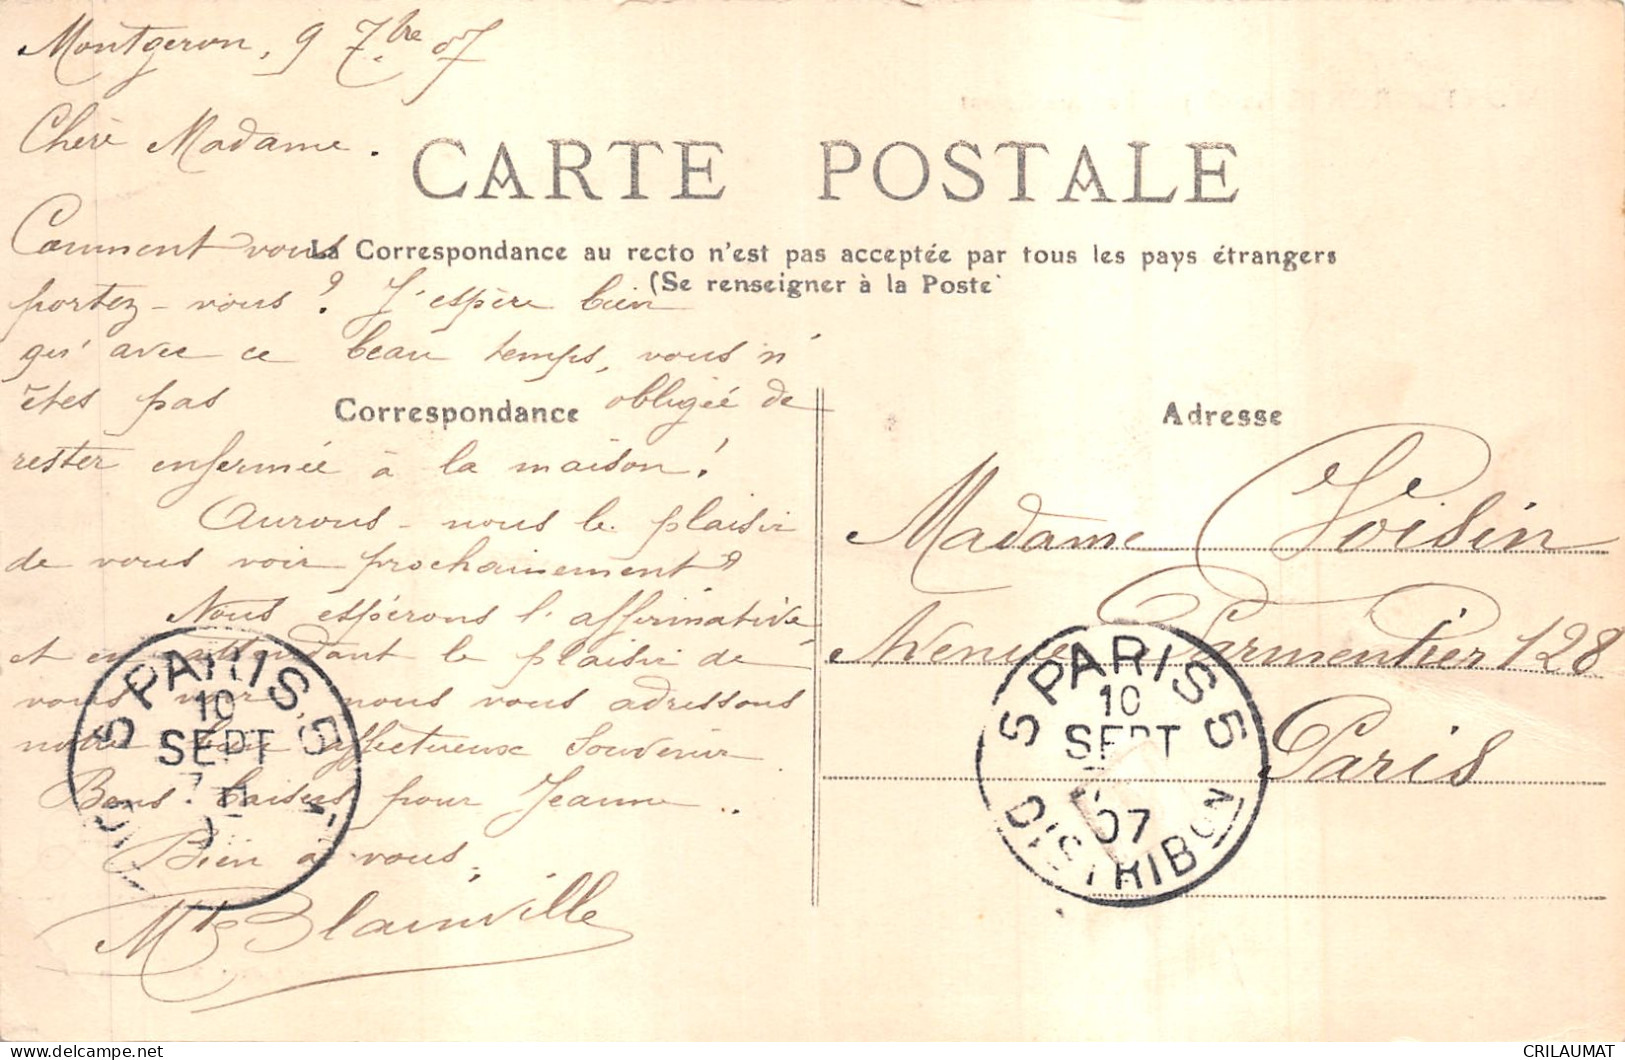 Montgeron, 9 7bre 07
Chère Madame.
CARTE POSTALE
La Correspondance au recto n'est pas acceptée par tous les pays étrangers
(Se renseigner à la Poste
Comment vous
portez-vous? J'espère bien
qu'avec ce beau temps, vous n'
êtes pas obligée de
rester enfermée à la maison!
Correspondance
Aurons-nous le plaisir
de vous voir prochainement?
Nous espérons l'affirmative
et en attendant le plaisir de
vous voir, nous vous adressons
notre affectueux souvenir
Bons baisers pour Jeanne..
Bien à vous,
Blainville
PARIS 5
10
SEPT
Adresse
Madame Voisin
Avenue Parmentier 128
Paris
5 PARIS 5
10
SEPT
07
DISTRIBON
CRILAUMAT